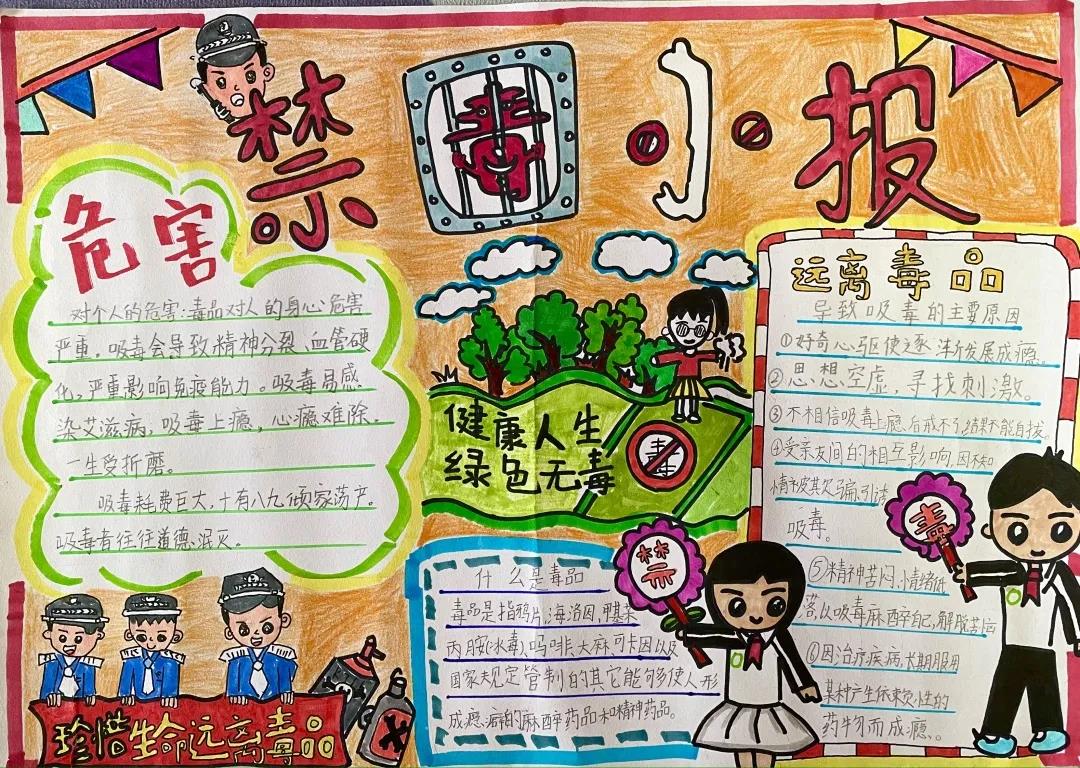 禁毒小报
危害
对个人的危害:毒品对人的身心危害
严重。吸毒会导致精神分裂、血管硬
化,严重影响免疫能力。吸毒易感
染艾滋病,吸毒上瘾,心瘾难除。
一生受折磨。
吸毒耗费巨大,十有八九倾家荡产。
吸毒者往往道德泯灭。
珍惜生命远离毒品
健康人生
绿色无毒
毒
什么是毒品
毒品是指鸦片,海洛因,甲基苯
丙胺(冰毒),吗啡,大麻,可卡因以及
国家规定管制的其它能够使人形
成瘾癖的麻醉药品和精神药品。
禁
毒
远离毒品
导致吸毒的主要原因
①好奇心驱使逐渐发展成瘾。
②思想空虚,寻找刺激。
③不相信吸毒上瘾后戒不了,结果不能自拔。
④受亲友间的相互影响,因不知
情被其欺骗,引诱
吸毒。
⑤精神苦闷,情绪低
落,以吸毒麻醉自己,解脱苦恼
⑥因治疗疾病,长期服用
某种产生依赖性的
药物而成瘾。